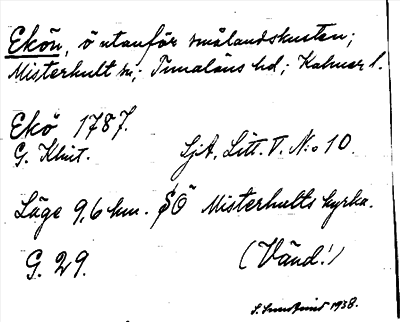 Ekön, ö utanför smålandskusten;
Misterhult sn; Tunaläns hd; Kalmar l.
Ekö 1787.
G. Klint. SjA. Litt. V. N:o 10.
Läge 9,6 km. SO Misterhults kyrka.
G. 29. (Vänd!)
1938.